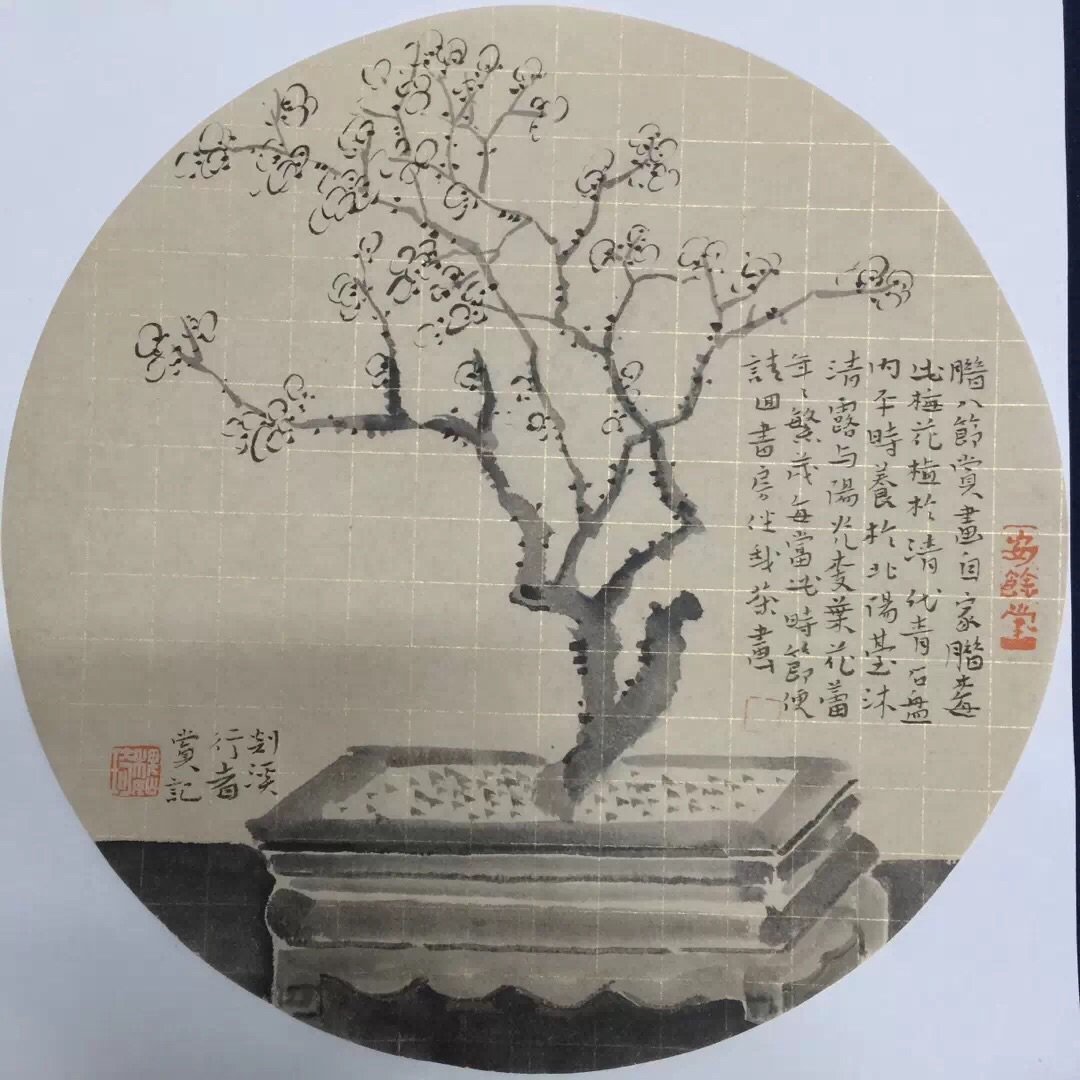 安餘堂
臘八節賞畫自家臘梅
此梅花植於清代青石盆
内平時養於北陽臺沐
清露与陽光葉花蕾
年〻繁茂每當此時節便
請回書房伴我茶畫
剡溪
行者
賞記